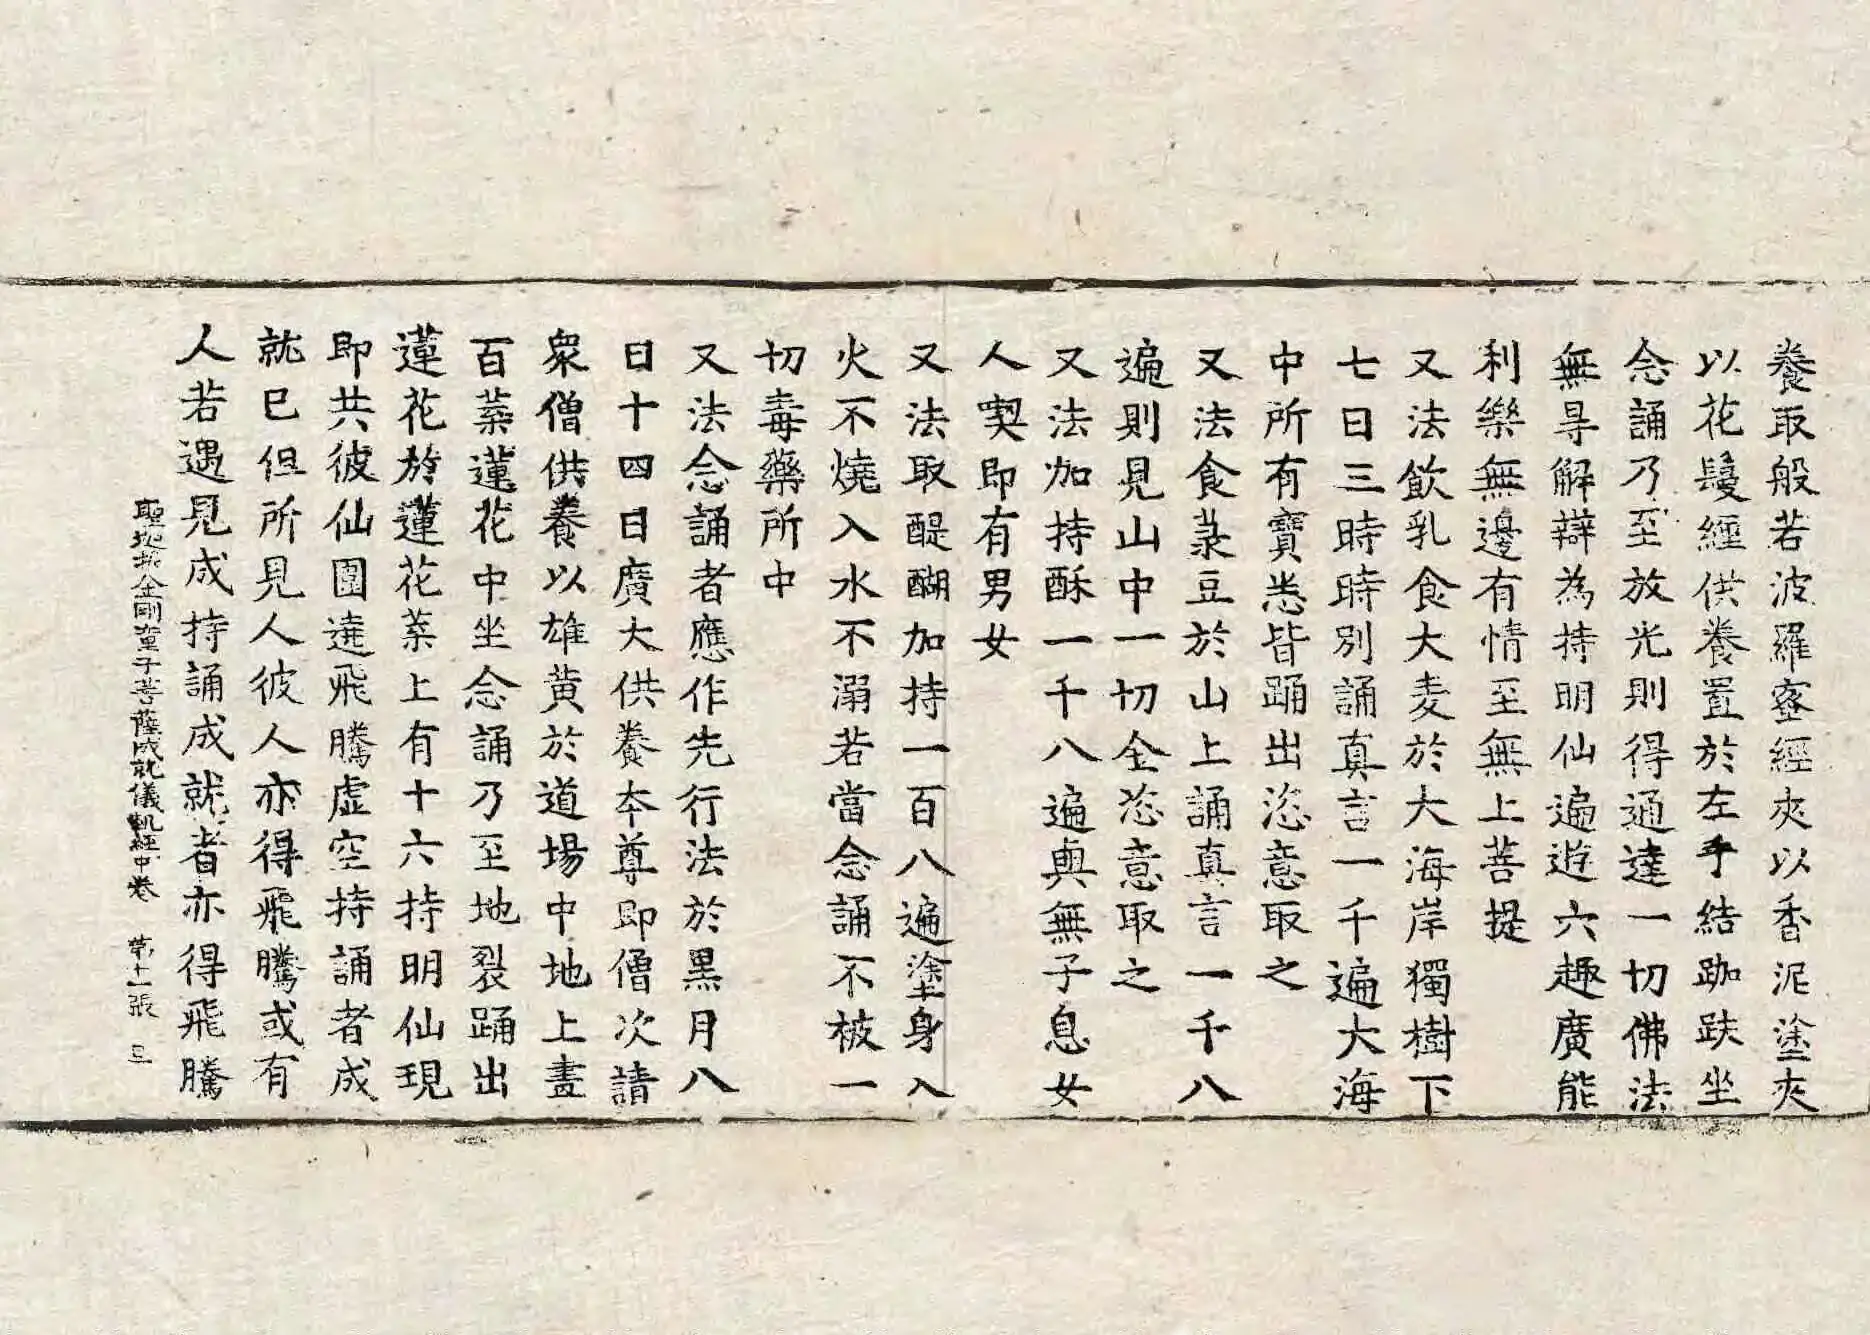 養取般若波羅蜜經夾以香泥塗夾
以花鬘經供養置於左手結跏趺坐
念誦乃至放光則得通達一切佛法
無㝵解辯為持明仙遍遊六趣廣能
利樂無邊有情至無上菩提
又法飲乳食大麦於大海岸獨樹下
七日三時時別誦真言一千遍大海
中所有寶悉皆踊出恣意取之
又法食菉豆於山上誦真言一千八
遍則見山中一切全恣意取之
又法加持酥一千八遍與無子息女
人喫即有男女
又法取醍醐加持一百八遍塗身入
火不燒入水不溺若當念誦不被一
切毒藥所中
又法念誦者應作先行法於黑月八
日十四日廣大供養本尊即僧次請
衆僧供養以雄黄於道場中地上畫
百葉蓮花中坐念誦乃至地裂踊出
蓮花於蓮花葉上有十六持明仙現
即共彼仙圍遶飛騰虛空持誦者成
就已但所見人彼人亦得飛騰或有
人若遇見成持誦成就者亦得飛騰
聖地㧞金剛童子菩薩成就儀軌經中卷 第十一張 三